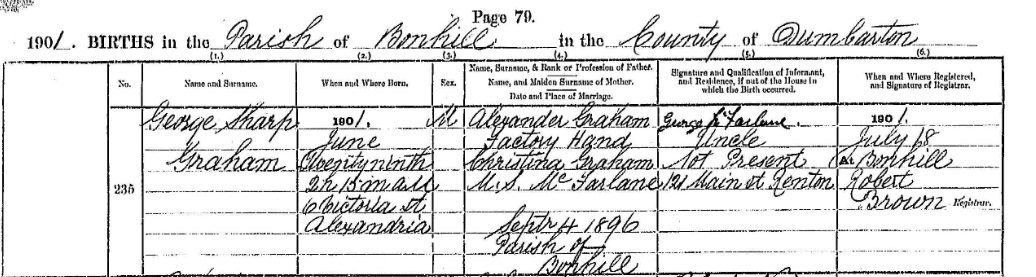 Page 79.
1901. BIRTHS in the Parish of Bonhill in the County of Dumbarton
(1.) (2.) (3.) (4.) (5.) (6.)
No.
Name and Surname.
When and Where Born.
Sex.
Name, Surname, & Rank or Profession of Father.
Name, and Maiden Surname of Mother.
Date and Place of Marriage.
Signature and Qualification of Informant,
and Residence, if out of the House in
which the Birth occurred.
When and Where Registered,
and Signature of Registrar.
235
George Sharp
Graham
1901.
June
Twentyninth
2h 15m A.M.
6 Victoria St
Alexandria
M
Alexander Graham
Factory Hand
Christina Graham
M.S. McFarlane
Septr 4 1896
Parish of
Bonhill
George McFarlane.
Uncle
Not Present
121 Main St Renton
1901.
July 18
At Bonhill
Robert
Brown Registrar.